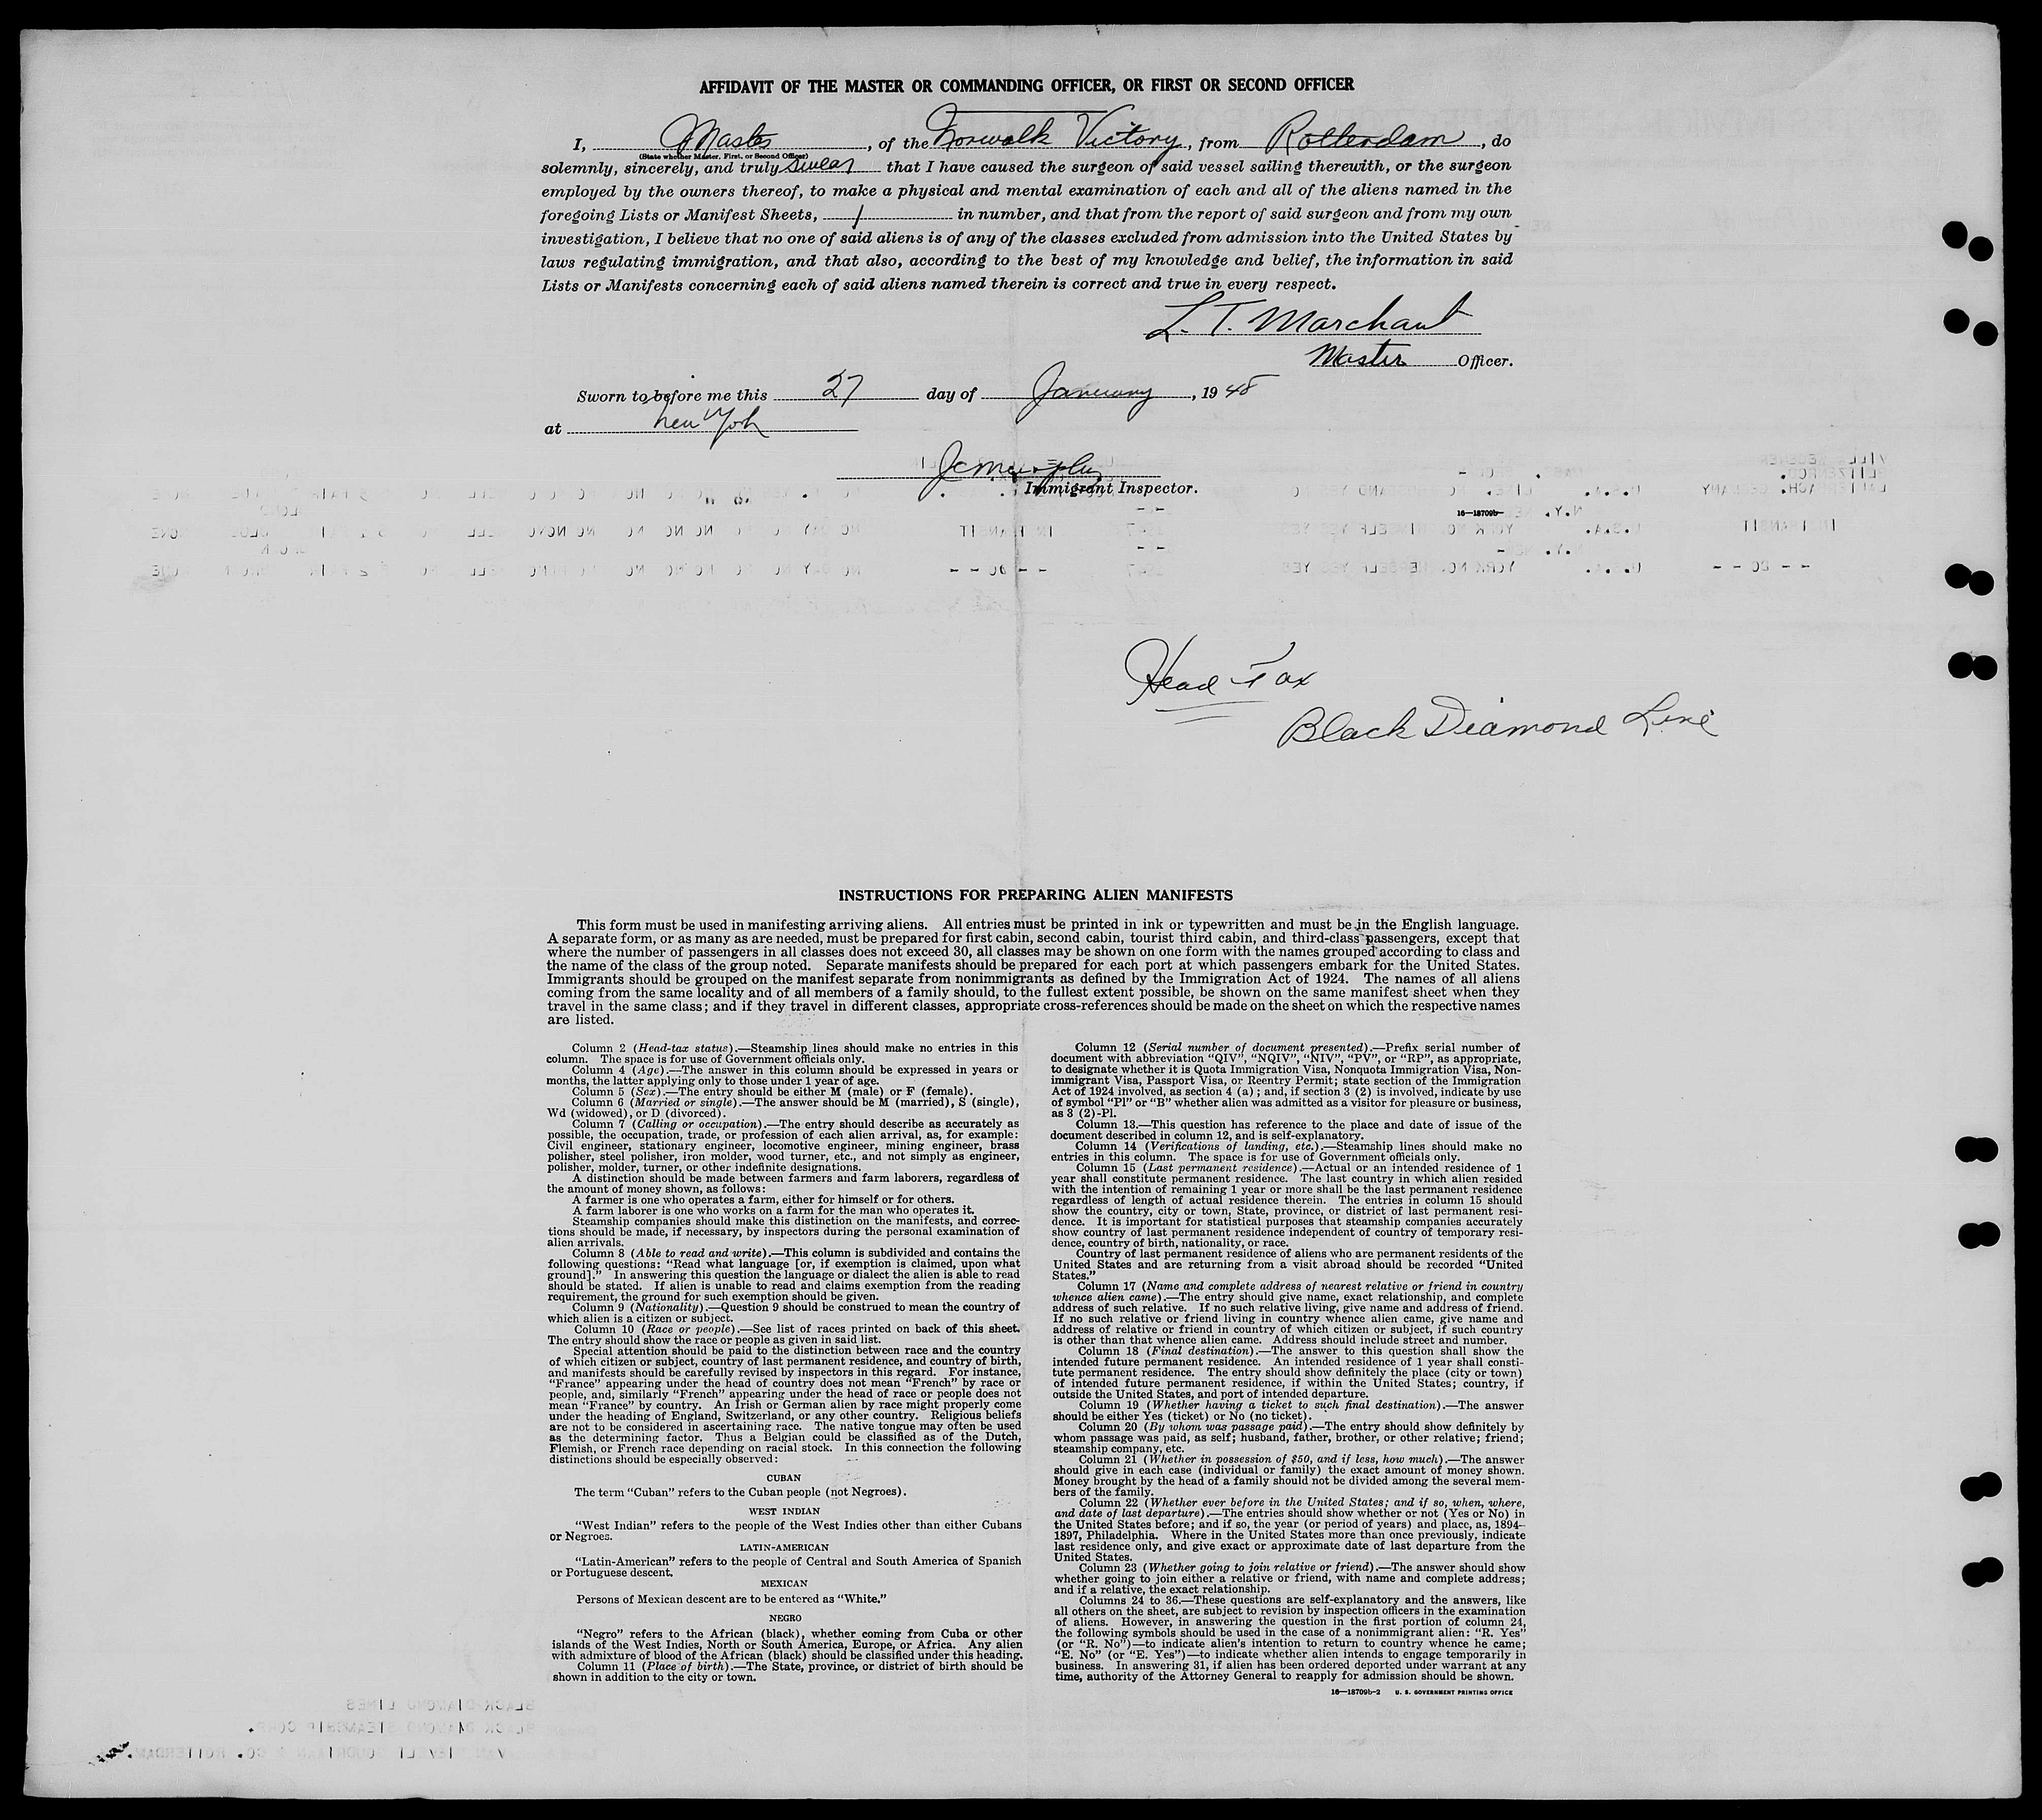 AFFIDAVIT OF THE MASTER OR COMMANDING OFFICER, OR FIRST OR SECOND OFFICER
I, Master, of the Norwalk Victory, from Rotterdam, do
(State whether Master, First, or Second Officer)
solemnly, sincerely, and truly swear that I have caused the surgeon of said vessel sailing therewith, or the surgeon
employed by the owners thereof, to make a physical and mental examination of each and all of the aliens named in the
foregoing Lists or Manifest Sheets, 1 in number, and that from the report of said surgeon and from my own
investigation, I believe that no one of said aliens is of any of the classes excluded from admission into the United States by
laws regulating immigration, and that also, according to the best of my knowledge and belief, the information in said
Lists or Manifests concerning each of said aliens named therein is correct and true in every respect.
L. T. Marchant
Master Officer.
Sworn to before me this 27 day of January, 1948
at New York
Immigrant Inspector.
16—18709b-
Head Tax
Black Diamond Line
INSTRUCTIONS FOR PREPARING ALIEN MANIFESTS
This form must be used in manifesting arriving aliens. All entries must be printed in ink or typewritten and must be in the English language.
A separate form, or as many as are needed, must be prepared for first cabin, second cabin, tourist third cabin, and third-class passengers, except that
where the number of passengers in all classes does not exceed 30, all classes may be shown on one form with the names grouped according to class and
the name of the class of the group noted. Separate manifests should be prepared for each port at which passengers embark for the United States.
Immigrants should be grouped on the manifest separate from nonimmigrants as defined by the Immigration Act of 1924. The names of all aliens
coming from the same locality and of all members of a family should, to the fullest extent possible, be shown on the same manifest sheet when they
travel in the same class; and if they travel in different classes, appropriate cross-references should be made on the sheet on which the respective names
are listed.
Column 2 (Head-tax status).—Steamship lines should make no entries in this
column. The space is for use of Government officials only.
Column 4 (Age).—The answer in this column should be expressed in years or
months, the latter applying only to those under 1 year of age.
Column 5 (Sex).—The entry should be either M (male) or F (female).
Column 6 (Married or single).—The answer should be M (married), S (single),
Wd (widowed), or D (divorced).
Column 7 (Calling or occupation).—The entry should describe as accurately as
possible, the occupation, trade, or profession of each alien arrival, as, for example:
Civil engineer, stationary engineer, locomotive engineer, mining engineer, brass
polisher, steel polisher, iron molder, wood turner, etc., and not simply as engineer,
polisher, molder, turner, or other indefinite designations.
A distinction should be made between farmers and farm laborers, regardless of
the amount of money shown, as follows:
A farmer is one who operates a farm, either for himself or for others.
A farm laborer is one who works on a farm for the man who operates it.
Steamship companies should make this distinction on the manifests, and correc-
tions should be made, if necessary, by inspectors during the personal examination of
alien arrivals.
Column 8 (Able to read and write).—This column is subdivided and contains the
following questions: "Read what language [or, if exemption is claimed, upon what
ground]." In answering this question the language or dialect the alien is able to read
should be stated. If alien is unable to read and claims exemption from the reading
requirement, the ground for such exemption should be given.
Column 9 (Nationality).—Question 9 should be construed to mean the country of
which alien is a citizen or subject.
Column 10 (Race or people).—See list of races printed on back of this sheet.
The entry should show the race or people as given in said list.
Special attention should be paid to the distinction between race and the country
of which citizen or subject, country of last permanent residence, and country of birth,
and manifests should be carefully revised by inspectors in this regard. For instance,
"France" appearing under the head of country does not mean "French" by race or
people, and, similarly "French" appearing under the head of race or people does not
mean "France" by country. An Irish or German alien by race might properly come
under the heading of England, Switzerland, or any other country. Religious beliefs
are not to be considered in ascertaining race. The native tongue may often be used
as the determining factor. Thus a Belgian could be classified as of the Dutch,
Flemish, or French race depending on racial stock. In this connection the following
distinctions should be especially observed:
CUBAN
The term "Cuban" refers to the Cuban people (not Negroes).
WEST INDIAN
"West Indian" refers to the people of the West Indies other than either Cubans
or Negroes.
LATIN-AMERICAN
"Latin-American" refers to the people of Central and South America of Spanish
or Portuguese descent.
MEXICAN
Persons of Mexican descent are to be entered as "White."
NEGRO
"Negro" refers to the African (black), whether coming from Cuba or other
islands of the West Indies, North or South America, Europe, or Africa. Any alien
with admixture of blood of the African (black) should be classified under this heading.
Column 11 (Place of birth).—The State, province, or district of birth should be
shown in addition to the city or town.
Column 12 (Serial number of document presented).—Prefix serial number of
document with abbreviation "QIV", "NQIV", "NIV", "PV", or "RP", as appropriate,
to designate whether it is Quota Immigration Visa, Nonquota Immigration Visa, Non-
immigrant Visa, Passport Visa, or Reentry Permit; state section of the Immigration
Act of 1924 involved, as section 4 (a); and, if section 3 (2) is involved, indicate by use
of symbol "Pl" or "B" whether alien was admitted as a visitor for pleasure or business,
as 3 (2)-Pl.
Column 13.—This question has reference to the place and date of issue of the
document described in column 12, and is self-explanatory.
Column 14 (Verifications of landing, etc.).—Steamship lines should make no
entries in this column. The space is for use of Government officials only.
Column 15 (Last permanent residence).—Actual or an intended residence of 1
year shall constitute permanent residence. The last country in which alien resided
with the intention of remaining 1 year or more shall be the last permanent residence
regardless of length of actual residence therein. The entries in column 15 should
show the country, city or town, State, province, or district of last permanent resi-
dence. It is important for statistical purposes that steamship companies accurately
show country of last permanent residence independent of country of temporary resi-
dence, country of birth, nationality, or race.
Country of last permanent residence of aliens who are permanent residents of the
United States and are returning from a visit abroad should be recorded "United
States."
Column 17 (Name and complete address of nearest relative or friend in country
whence alien came).—The entry should give name, exact relationship, and complete
address of such relative. If no such relative living, give name and address of friend.
If no such relative or friend living in country whence alien came, give name and
address of relative or friend in country of which citizen or subject, if such country
is other than that whence alien came. Address should include street and number.
Column 18 (Final destination).—The answer to this question shall show the
intended future permanent residence. An intended residence of 1 year shall consti-
tute permanent residence. The entry should show definitely the place (city or town)
of intended future permanent residence, if within the United States; country, if
outside the United States, and port of intended departure.
Column 19 (Whether having a ticket to such final destination).—The answer
should be either Yes (ticket) or No (no ticket).
Column 20 (By whom was passage paid).—The entry should show definitely by
whom passage was paid, as self; husband, father, brother, or other relative; friend;
steamship company, etc.
Column 21 (Whether in possession of $50, and if less, how much).—The answer
should give in each case (individual or family) the exact amount of money shown.
Money brought by the head of a family should not be divided among the several mem-
bers of the family.
Column 22 (Whether ever before in the United States; and if so, when, where,
and date of last departure).—The entries should show whether or not (Yes or No) in
the United States before; and if so, the year (or period of years) and place, as, 1894–
1897, Philadelphia. Where in the United States more than once previously, indicate
last residence only, and give exact or approximate date of last departure from the
United States.
Column 23 (Whether going to join relative or friend).—The answer should show
whether going to join either a relative or friend, with name and complete address;
and if a relative, the exact relationship.
Columns 24 to 36.—These questions are self-explanatory and the answers, like
all others on the sheet, are subject to revision by inspection officers in the examination
of aliens. However, in answering the question in the first portion of column 24,
the following symbols should be used in the case of a nonimmigrant alien: "R. Yes"
(or "R. No")—to indicate alien's intention to return to country whence he came;
"E. No" (or "E. Yes")—to indicate whether alien intends to engage temporarily in
business. In answering 31, if alien has been ordered deported under warrant at any
time, authority of the Attorney General to reapply for admission should be shown.
16—18709b-2 U. S. GOVERNMENT PRINTING OFFICE